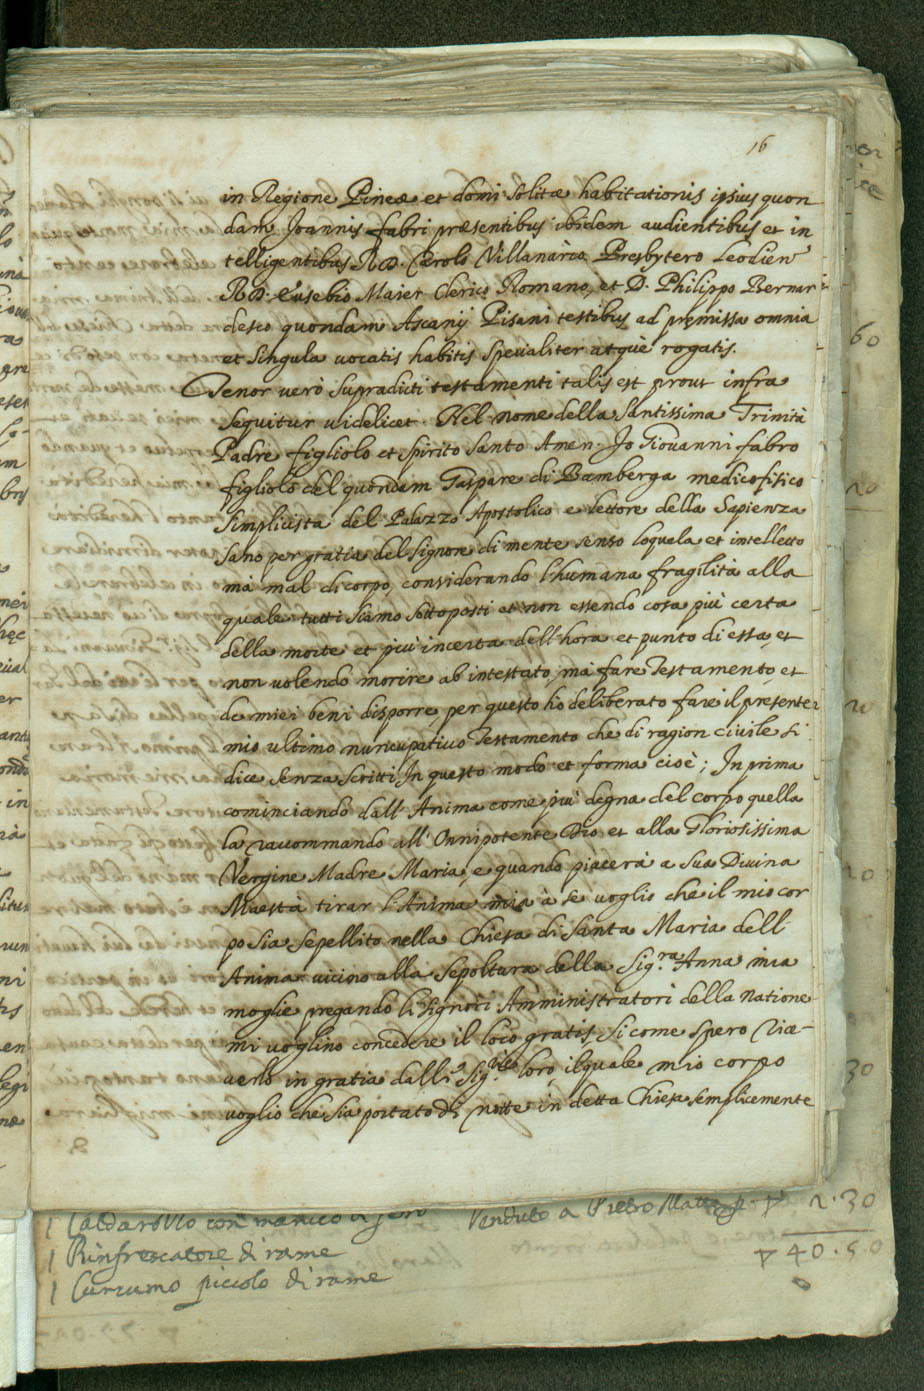 16
in Regione Pineæ et domi solitæ habitationis ipsius quon
dam Joannis fabri præsentibus ibidem audientibus et in
telligentibus R.D. Carolo Villanario Presbytero Leodien
R.D. Eusebio Maier Clerico Romano, et D. Philippo Bernar
desco quondam Ascanij Pisani testibus ad premissa omnia
et singula vocatis habitis specialiter atquè rogatis.
Tenor verò supradicti testamenti talis est prout infra
sequitur videlicet. Nel nome della Santissima Trinità
Padre figliolo et Spirito Santo Amen. Jo Giovanni fabro
figliolo del quondam Gaspare di Bamberga medico fisico
simplicista del Palazzo Apostolico e lettore della Sapienza
sano per gratia del Signore di mente senso loquela et intelletto
mà mal di corpo, considerando l'humana fragilità alla
quale tutti siamo sottoposti et non essendo cosa più certa
della morte et più incerta dell'hora et punto di essa, et
non volendo morire ab intestato, mà fare Testamento et
de miei beni disporre, per questo ho deliberato fare il presente
mio ultimo nuncupativo Testamento che di ragion civile si
dice senza scritti In questo modo et forma cioè; In prima
cominciando dall'Anima come più degna del corpo quella
la raccommando all'Onnipotente Dio et alla Gloriosissima
Vergine Madre Maria, e quando piacerà a Sua Divina
Maestà tirar l'Anima mia à se voglio che il mio cor
po sia sepellito nella Chiesa di Santa Maria dell
Anima vicino alla sepoltura della Sig.ra Anna mia
moglie pregando li Signori Amministratori della Natione
mi voglino concedere il loco gratis, si come spero rice-
verlo in gratia dalli Sig.rie loro, il quale mio corpo
voglio che sia portato di notte in detta Chiesa semplicemente
60
20
20
20
30
1 Caldarollo con manico di fero Venduto a Pietro 2.30
1 Rinfrescatore di rame 40.50
1 Curcumo piccolo di rame